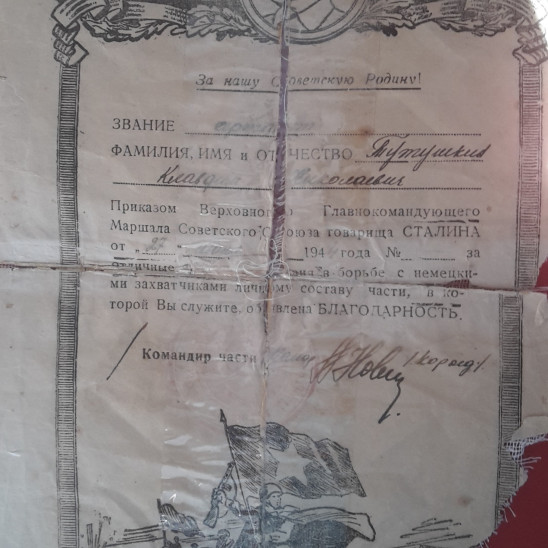 За нашу Советскую Родину!
ЗВАНИЕ
ФАМИЛИЯ, ИМЯ и ОТЧЕСТВО Тутушкин
Николаевич
Приказом Верховного Главнокомандующего
Маршала Советского Союза товарища СТАЛИНА
от " 194 года № за
отличные в борьбе с немецки-
ми захватчиками личному составу части, в ко-
торой Вы служите, объявлена БЛАГОДАРНОСТЬ.
Командир части